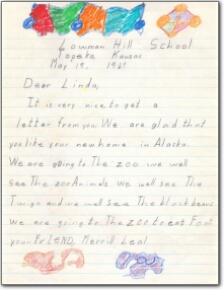 Lowman Hill School
Topeka Kansas
May 19, 1969
Dear Linda,
It is very nice to get a
letter from you. We are glad that
you like your new home in Alaska.
We are going to The zoo. we well
see The zoo Animals we well see The
and we well see The black bears
we are going to The zoo to eat
your FrIEND, Merrill Leal